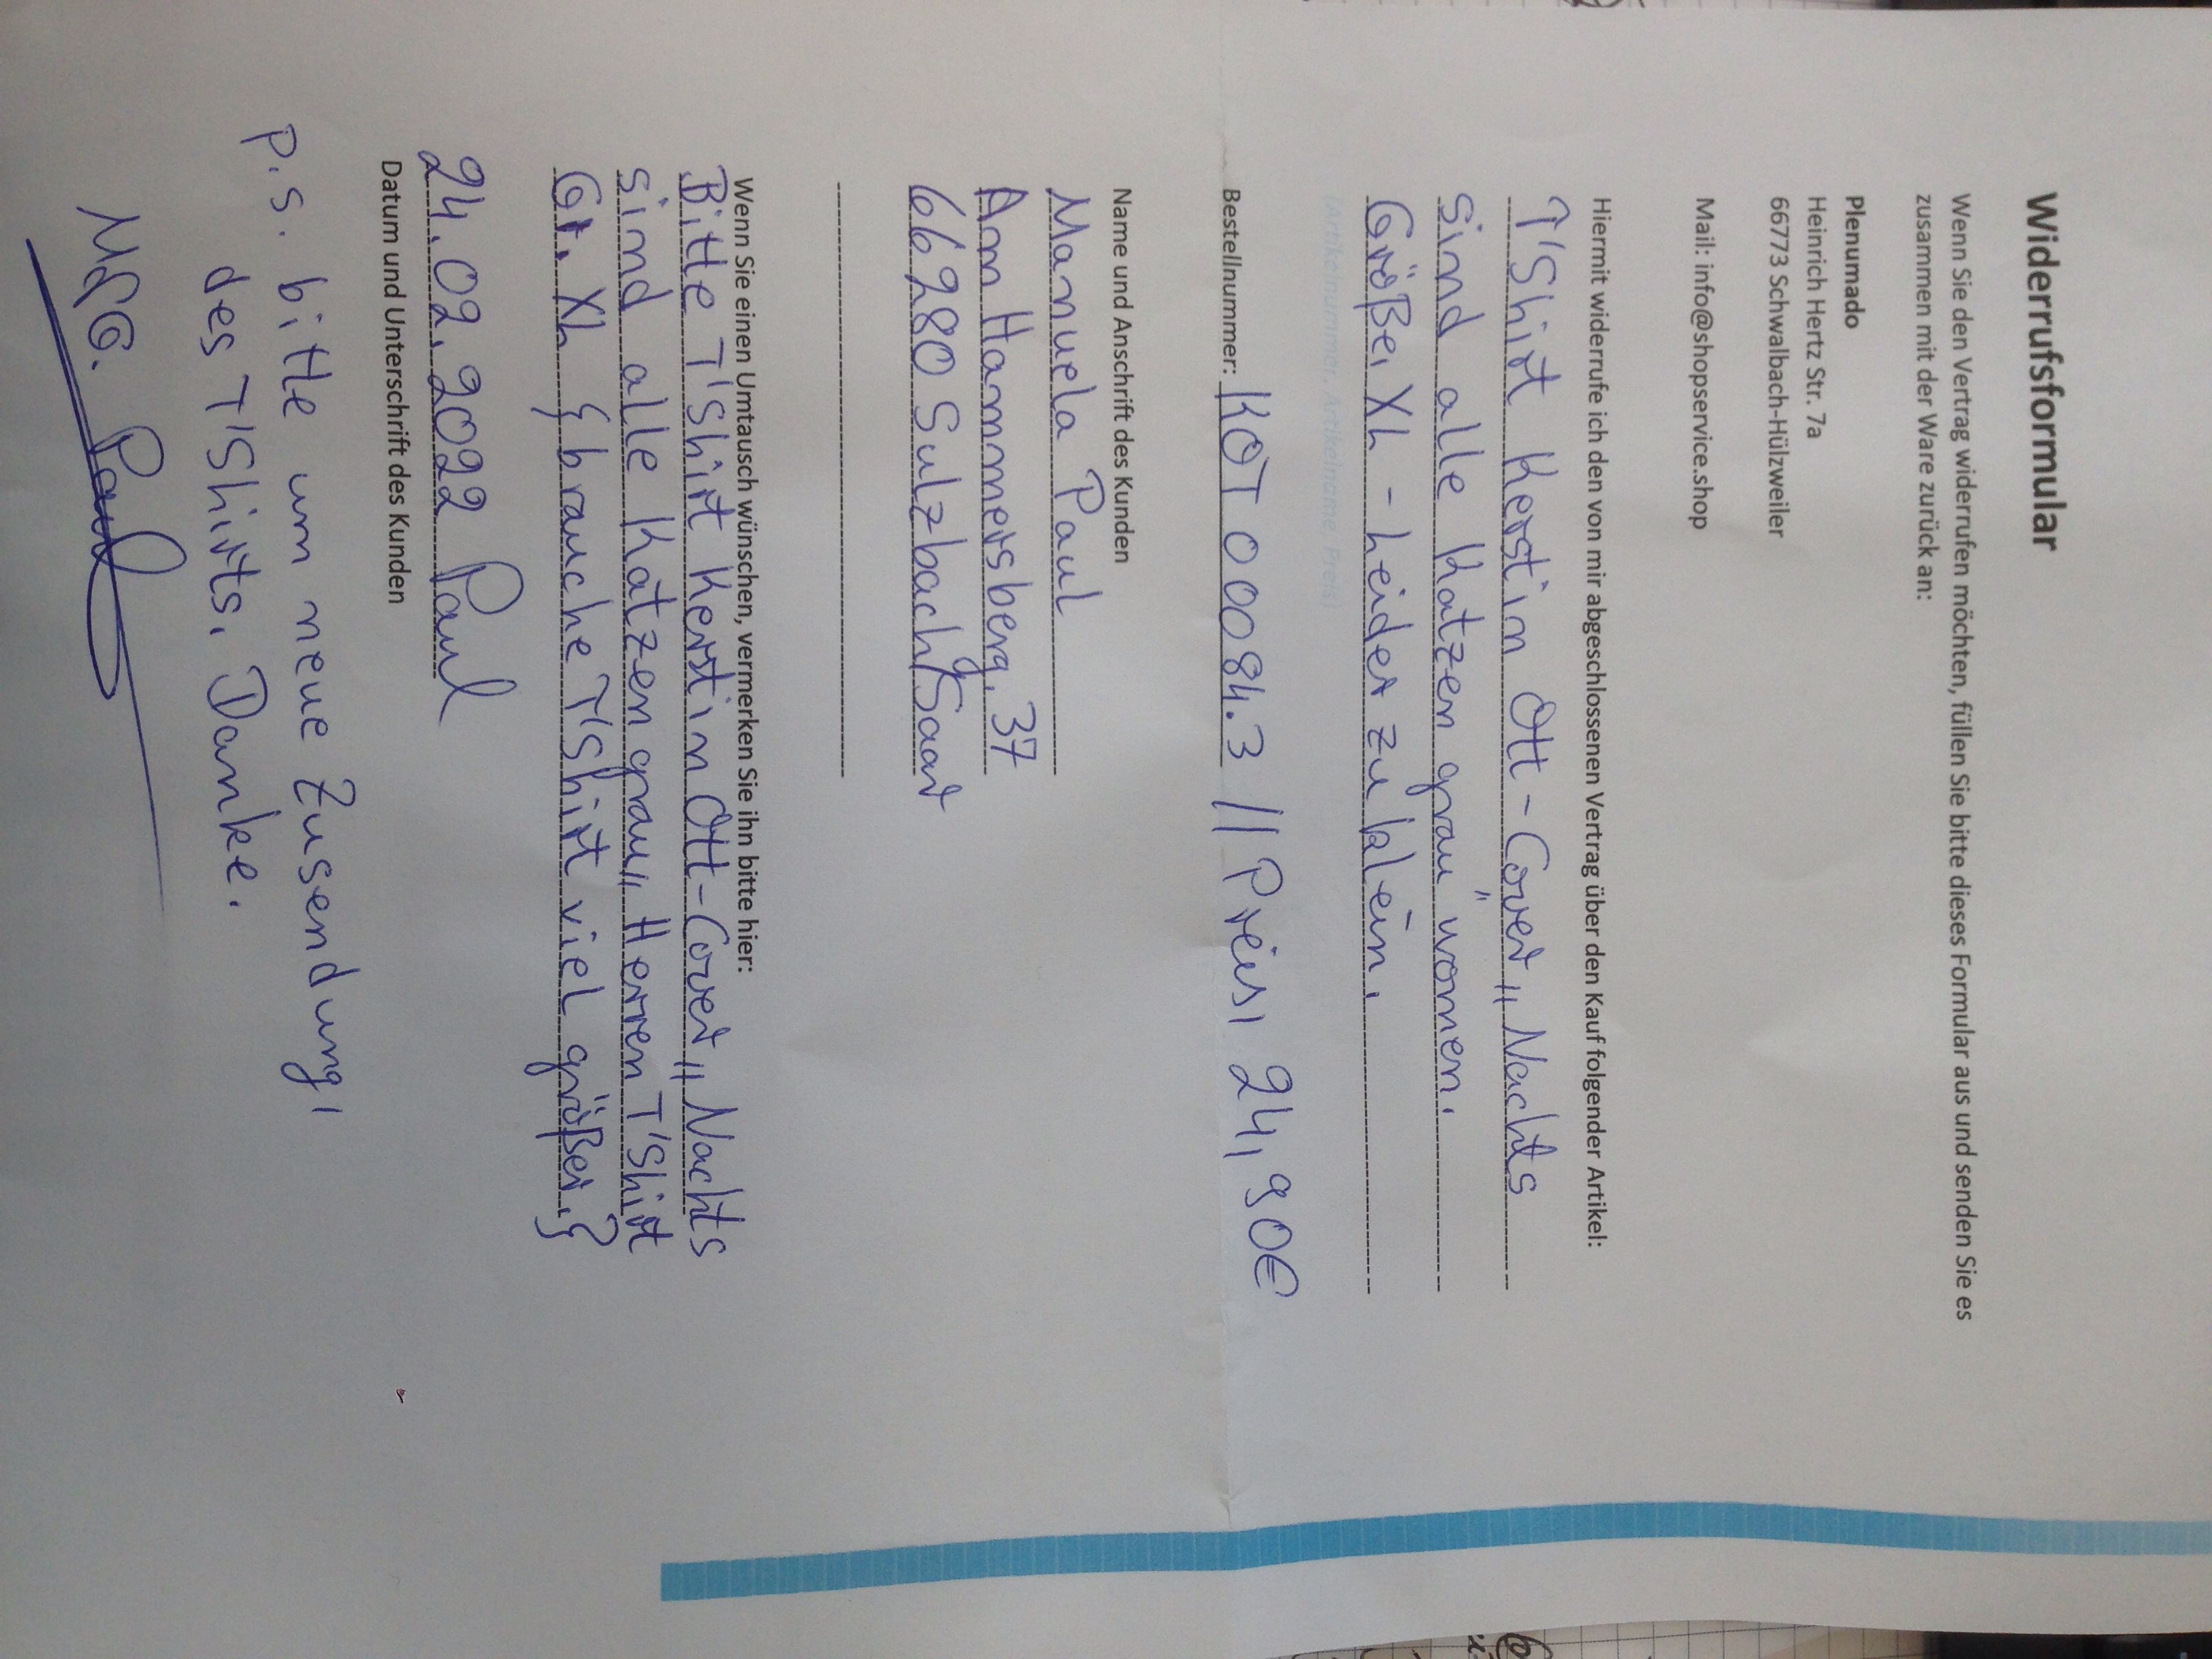 Widerrufsformular
Wenn Sie den Vertrag widerrufen möchten, füllen Sie bitte dieses Formular aus und senden Sie es
zusammen mit der Ware zurück an:
Plenumado
Heinrich Hertz Str. 7a
66773 Schwalbach-Hülzweiler
Mail: info@shopservice.shop
Hiermit widerrufe ich den von mir abgeschlossenen Vertrag über den Kauf folgender Artikel:
T'Shirt Kerstin Ott - Cover „Nachts
sind alle Katzen grau" women.
Größe: XL - Leider zu klein.
(Artikelnummer, Artikelname, Preis)
Bestellnummer: KOT 00084.3 // Preis: 24,90€
Name und Anschrift des Kunden
Manuela Paul
Am Hammersberg. 37
66280 Sulzbach/Saar
Wenn Sie einen Umtausch wünschen, vermerken Sie ihn bitte hier:
Bitte T'Shirt Kerstin Ott - Cover „Nachts
sind alle Katzen grau„ Herren T'Shirt
Gr. XL {brauche T'Shirt viel größer.}
24.02.2022 Paul
Datum und Unterschrift des Kunden
P.S. bitte um neue Zusendung,
des T'Shirts. Danke.
MfG. Paul